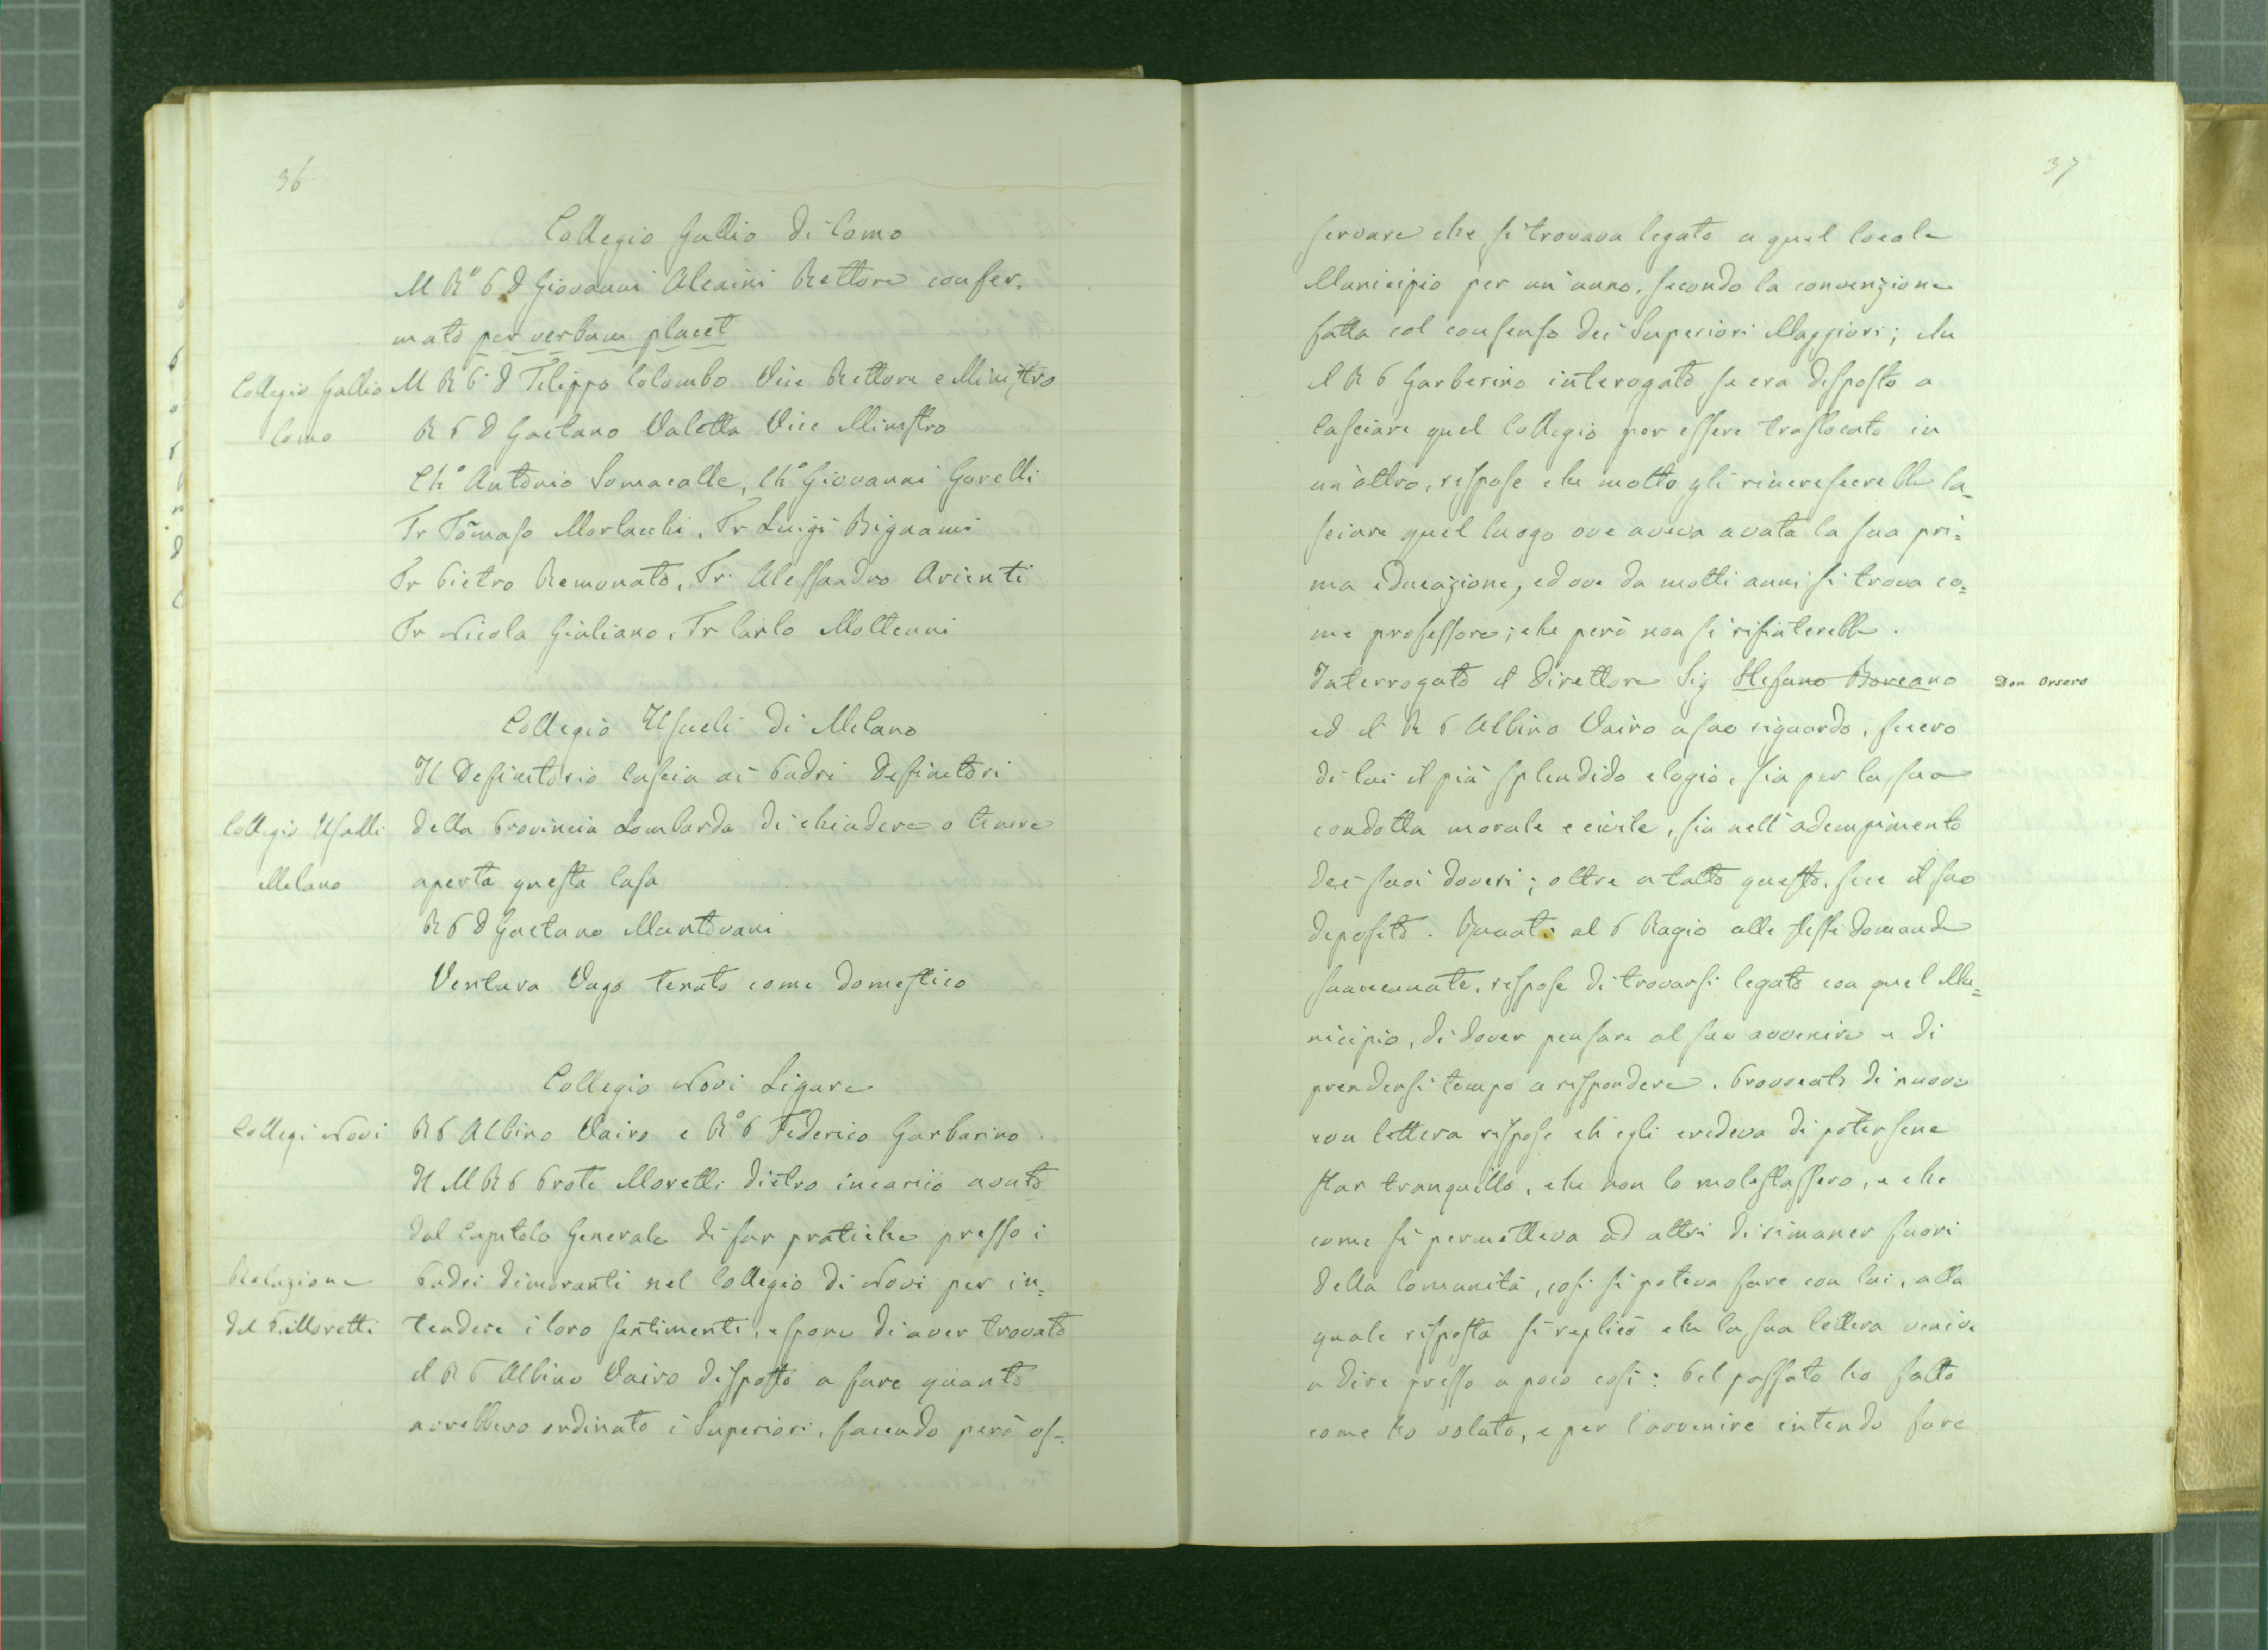 36
Collegio Gallio di Como
M Rº P D Giovanni Alcaini Rettore confer=
mato per verbum placet
Collegio Gallio
Como
M R P D Filippo Colombo Vice Rettore e Ministro
R P D Gaetano Valetta Vice Ministro
Chº Antonio Somacalle, Chº Giovanni Gorelli
Fr Tõmaso Morlacchi, Fr Luigi Bignami
Fr Pietro Remonato, Fr Alessandro Arienti
Fr Nicola Giuliano, Fr Carlo Molteuni
Collegio Usueli di Milano
Il Definitorio lascia ai Padri Definitori
Collegio Usulli
Milano
della Provincia Lombarda di chiudere o tenere
aperta questa Casa
R P D Gaetano Mantovani
Ventura Vago tenuto come domestico
Collegio Novi Ligure
Collegi Novi
R P Albino Vairo e Rº P Federico Garbarino
Il M R P Prote Moretti dietro incarico avuto
dal Capitolo Generale di far pratiche presso i
Relazione
del P. Moretti
Padri dimoranti nel Collegio di Novi per in=
tendere i loro sentimenti, espone di aver trovato
il R P Albino Vairo disposto a fare quanto
avrebbero ordinato i Superiori, facendo però os=
37
servare che si trovava legato a quel locale
Municipio per un'anno, secondo la convenzione
fatta col consenso dei Superiori Maggiori; che
il R P Garberino interogato se era disposto a
lasciare quel Collegio per essere traslocato in
un'altro, rispose che molto gli rincrescerebbe la=
sciare quel luogo ove aveva avuta la sua pri=
ma educazione, ed ove da molti anni si trova co=
me professore; che però non si rifiuterebbe.
Interrogato il Direttore Sig Stefano Boreano
Don Orsero
ed il R P Albino Vairo a suo riguardo, fecero
di lui il più splendido elogio, sia per la sua
condotta morale e civile, sia nell'adempimento
dei suoi doveri; oltre a tutto questo, fece il suo
deposito. Quanto al P Ragio alle stesse domande
suaccennate, rispose di trovarsi legato con quel Mu=
nicipio, di dover pensare al suo avvenire e di
prendersi tempo a rispondere. Provocato di nuovo
con lettera rispose ch'egli credeva di potersene
star tranquillo, che non lo molestassero, e che
come si permetteva ad altri di rimaner fuori
della Comunità, così si poteva fare con lui, alla
quale risposta si replicò che la sua lettera veniva
a dire presso a poco così: Pel passato ho fatto
come ho voluto, e per l'avvenire intendo fare